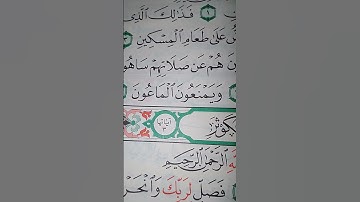 ١ فَذَٰلِكَ الَّذِي
عَلَىٰ طَعَامِ الْمِسْكِينِ
هُمْ عَن صَلَاتِهِمْ سَاهُو
وَيَمْنَعُونَ الْمَاعُونَ
كَوْثَرِ آيَاتُهَا ٣
الرَّحْمَٰنِ الرَّحِيمِ
فَصَلِّ لِرَبِّكَ وَانْحَرْ